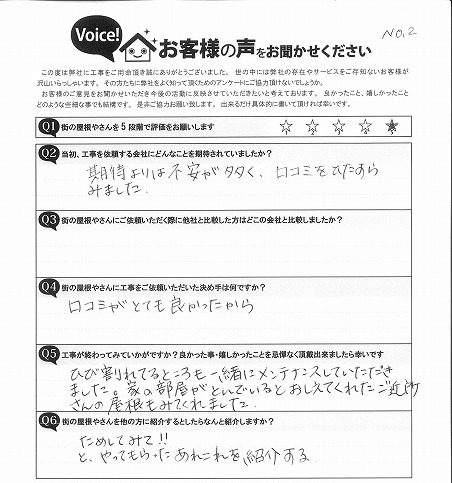 Voice!
お客様の声をお聞かせください
NO.2
この度は弊社に工事をご用命頂き誠にありがとうございました。世の中には弊社の存在やサービスをご存知ないお客様が
沢山いらっしゃいます。その方たちに弊社をよく知って頂くためのアンケートにご協力頂けないでしょうか。
お客様のご意見をお聞かせいただき今後の活動に反映させていただきたいと考えております。良かったこと、嬉しかったこと
どのような些細な事でも結構です。是非ご協力お願い致します。出来るだけ具体的に書いて頂ければ幸いです。
Q1 街の屋根やさんを5段階で評価をお願いします
☆ ☆ ☆ ☆ ★
Q2 当初、工事を依頼する会社にどんなことを期待されていましたか?
期待よりは不安が多く、口コミをひたすら
みました.
Q3 街の屋根やさんにご依頼いただく際に他社と比較した方はどこの会社と比較しましたか?
Q4 街の屋根やさんに工事をご依頼いただいた決め手は何ですか?
口コミがとても良かったから
Q5 工事が終わってみていかがですか?良かった事・嬉しかったことを忌憚なく頂戴出来ましたら幸いです
ひび割れてるところも一緒にメンテナンスしていただき
ました。家の部屋がとんでいるとおしえてくれたご近所
さんの屋根もみてくれました.
Q6 街の屋根やさんを他の方に紹介するとしたらなんと紹介しますか?
ためしてみて!!
と、やってもらったあれこれを紹介する.